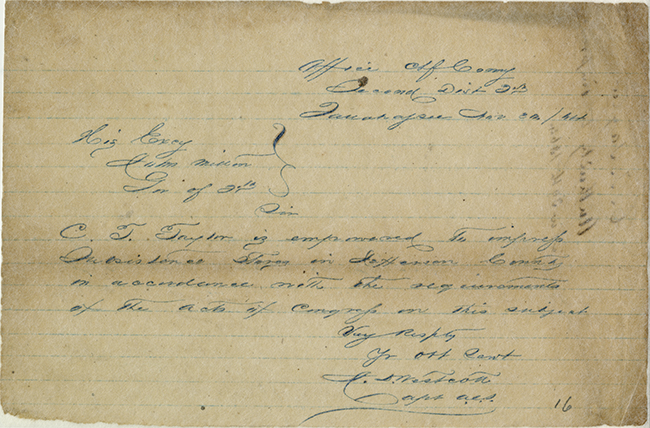 Office Chf Comy
Second Dist Fla
Tallahassee Nov
His Excy
John Milton
Gov of Fla
Sir
C. T. Taylor is empowered to impress
Subsistence Stores in Jefferson County
in accordance with the requirements
of the acts of Congress on this subject
Very Respty
Yr Obt Servt
A. Westcott
Capt
16